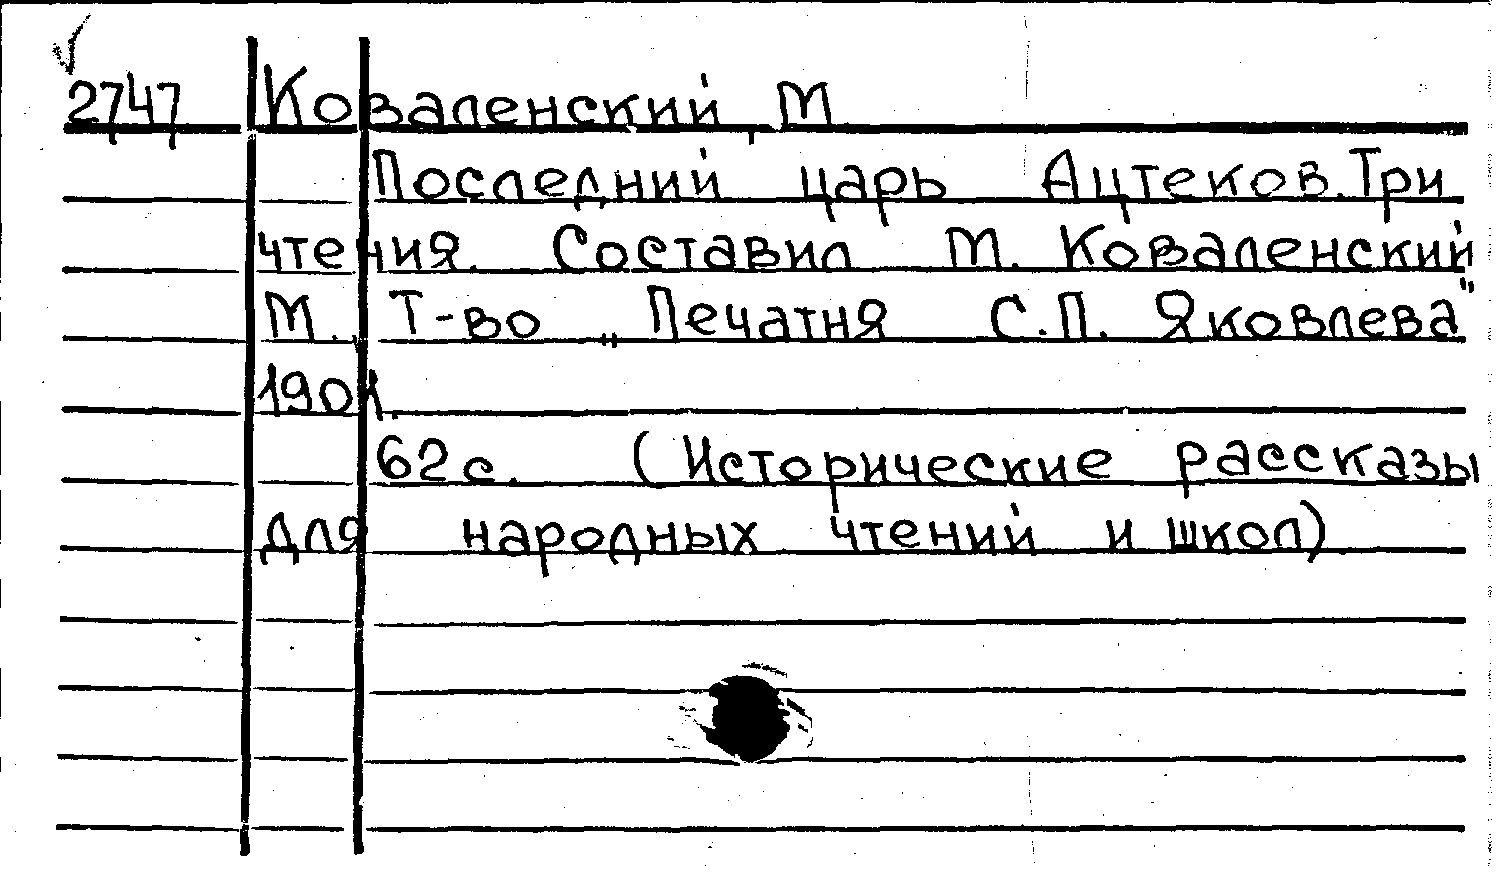 2747 Коваленский, М
Последний царь Ацтеков. Три
чтения. Составил М. Коваленский
М. Т-во „Печатня С.П. Яковлева"
1901.
62 с. (Исторические рассказы
для народных чтений и школ)